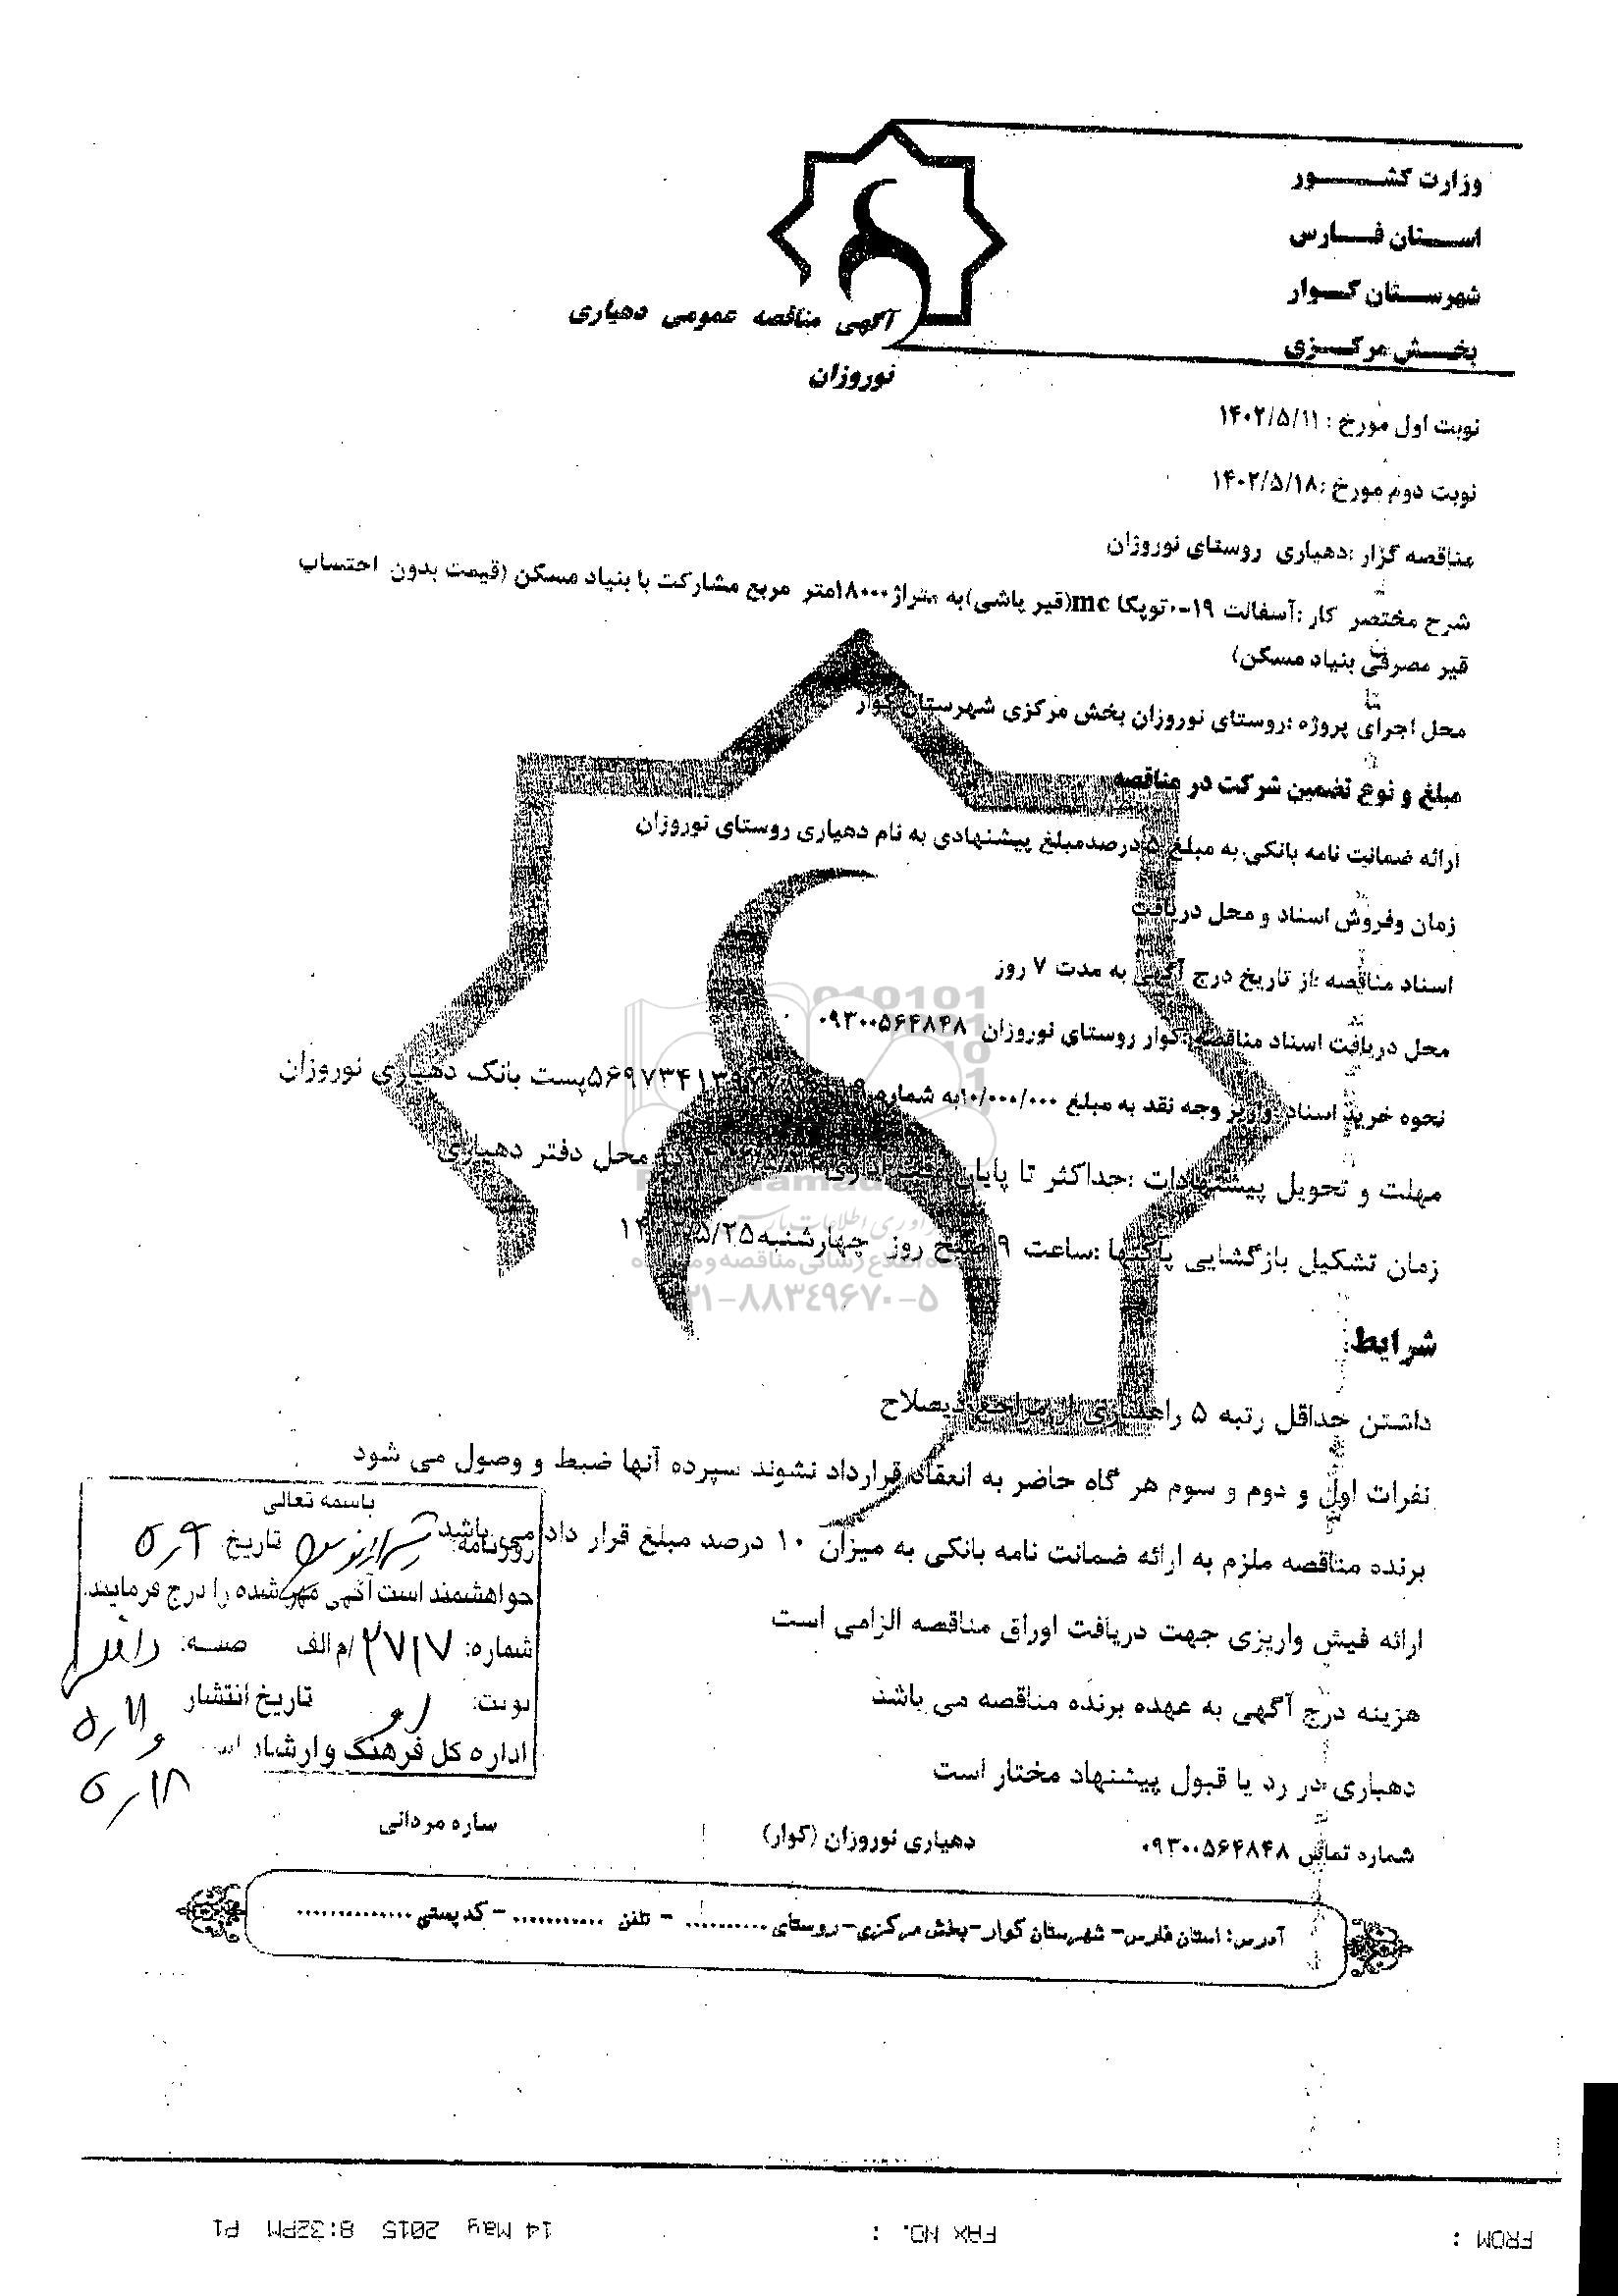 وزارت کشور
استان فارس
شهرستان کوار
بخش مرکزی
آگهی مناقصه عمومی دهیاری
نوروزان
نوبت اول مورخ : ۱۴۰۲/۵/۱۱
نوبت دوم مورخ :۱۴۰۲/۵/۱۸
مناقصه گزار :دهیاری روستای نوروزان
شرح مختصر کار :آسفالت ۱۹-۰توپکا mc(قیر پاشی)به متراژ۱۸۰۰۰متر مربع مشارکت با بنیاد مسکن (قیمت بدون احتساب
قیر مصرفی بنیاد مسکن)
محل اجرای پروژه :روستای نوروزان بخش مرکزی شهرستان کوار
مبلغ و نوع تضمین شرکت در مناقصه
ارائه ضمانت نامه بانکی به مبلغ ۵ درصدمبلغ پیشنهادی به نام دهیاری روستای نوروزان
زمان وفروش اسناد و محل دریافت
اسناد مناقصه :از تاریخ درج آگهی به مدت ۷ روز
محل دریافت اسناد مناقصه :کوار روستای نوروزان ۰۹۳۰۰۵۶۴۸۴۸
نحوه خرید اسناد :واریز وجه نقد به مبلغ ۱۰/۰۰۰/۰۰۰به شماره پست بانک دهیاری نوروزان
مهلت و تحویل پیشنهادات :حداکثر تا پایان وقت اداری محل دفتر دهیاری
زمان تشکیل بازگشایی پاکتها :ساعت ۹ صبح روز چهارشنبه۱۴۰۲/۵/۲۵
شرایط:
داشتن حداقل رتبه ۵ راهسازی از مراجع ذیصلاح
نفرات اول و دوم و سوم هر گاه حاضر به انعقاد قرارداد نشوند سپرده آنها ضبط و وصول می شود
برنده مناقصه ملزم به ارائه ضمانت نامه بانکی به میزان ۱۰ درصد مبلغ قرار داد می باشد
ارائه فیش واریزی جهت دریافت اوراق مناقصه الزامی است
هزینه درج آگهی به عهده برنده مناقصه می باشد
دهیاری در رد یا قبول پیشنهاد مختار است
شماره تماس ۰۹۳۰۰۵۶۴۸۴۸ دهیاری نوروزان (کوار)
باسمه تعالی
روزنامه: تاریخ: ۵٫۹
خواهشمند است آگهی مهر شده را درج فرمایید.
شماره: ۲۷۱۷/م الف صفحه:
نوبت: تاریخ انتشار ۵٫۱۱
اداره کل فرهنگ و ارشاد و ۵٫۱۸
ساره مردانی
آدرس: استان فارس- شهرستان کوار-بخش مرکزی-روستای .......... - تلفن ........... - کد پستی ..............
۰۲۱-۸۸۳۴۹۶۷۰-۵
FROM : FAX NO. : 14 May 2015 8:32PM P1